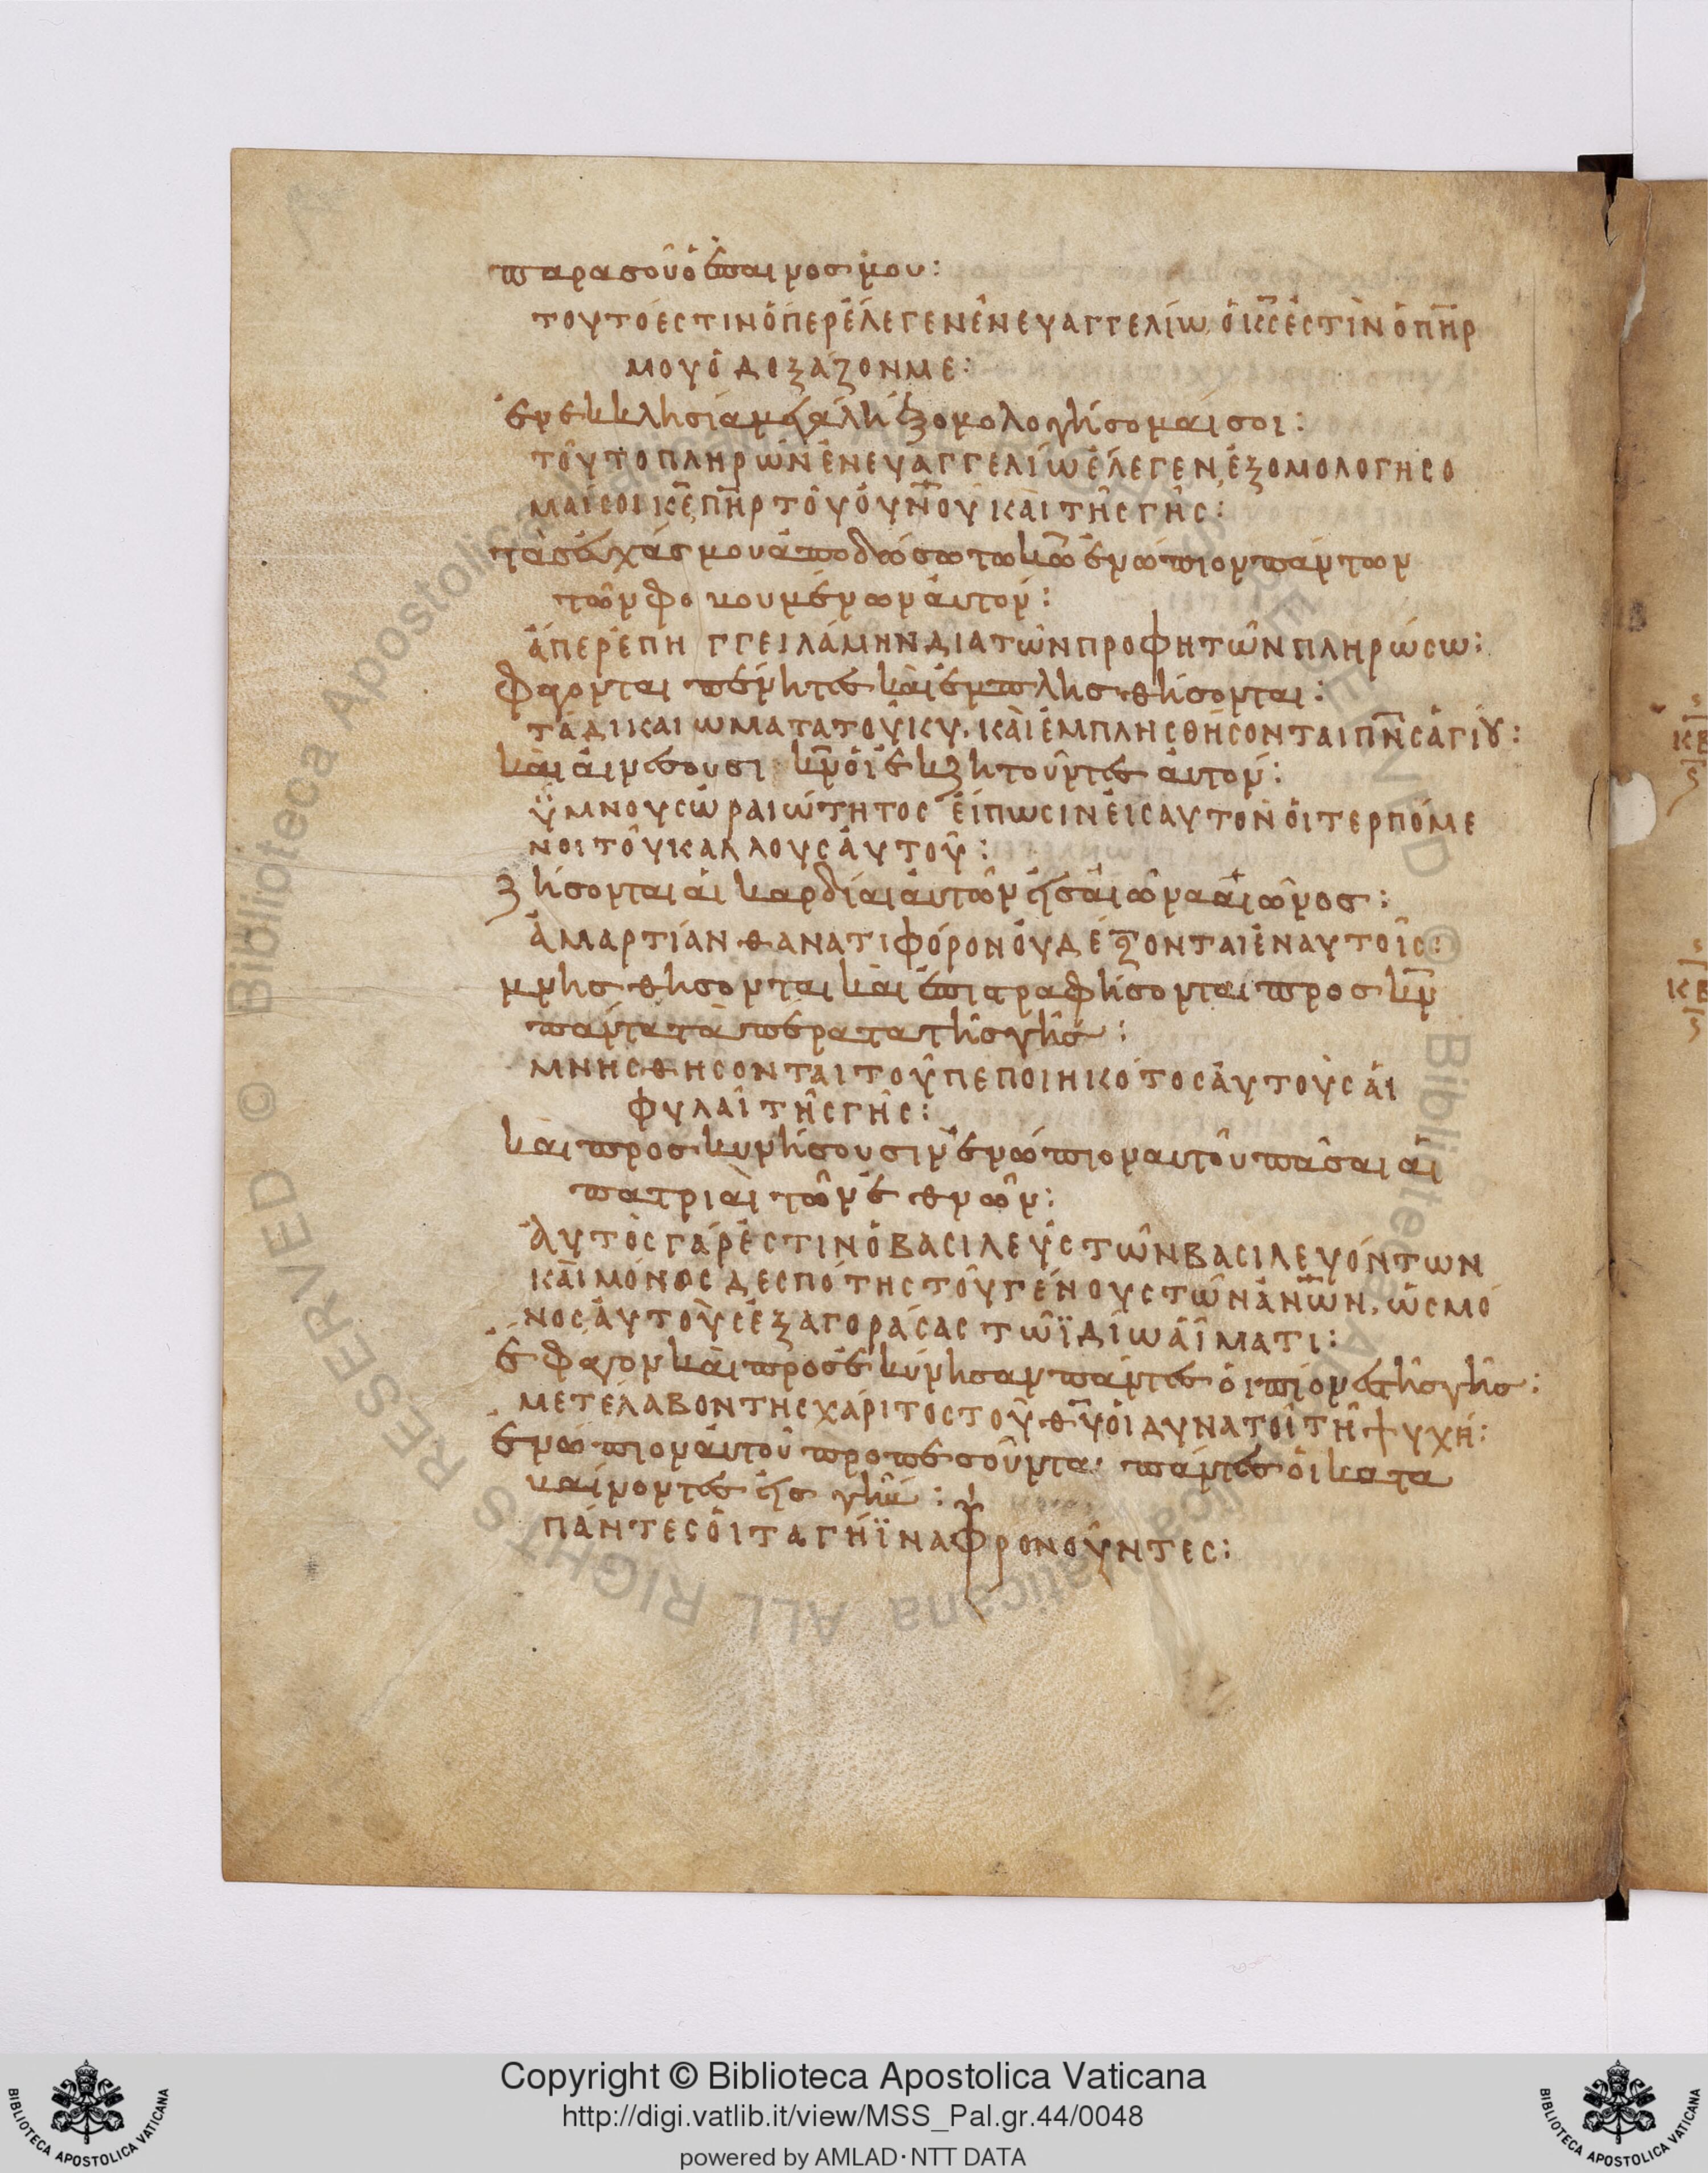 παρα σοῦ ὁ ἔπαινος μου:
τοῦτό ἐστιν ὅπερ ἔλεγεν ἐν ευαγγελίω, ὁ κ̅ς̅ ἐστὶν ὁ π̅η̅ρ̅
μου ὁ δοξάζον με:
ἐν εκκλησία μεγάλη ἐξομολογήσομαί σοι:
τοῦτο πληρῶν ἐν ευαγγελίω ἔλεγεν, ἐξομολογησο
μαί σοι κ̅ε̅ π̅η̅ρ̅ τοῦ ὀυ̅ν̅ο̅υ̅ καὶ τῆς γῆς:
τὰς ἐυχάς μου ἀποδώσω τω κ̅ω̅ ἐνώπιον πάντων
τῶν φοβουμένων ἀυτον:
ἅπερ ἐπηγγειλάμην δια τῶν προφητῶν πληρώσω:
φάγονται πένητες καὶ ἐμπλησθήσονται:
τὰ δικαιωματα τοῦ κ̅υ̅. καὶ ἐμπλησθήσονται π̅ν̅ς̅ ἁγίου:
καὶ ἀινέσουσι κ̅ν̅ ὁι ἐκζητοῦντες ἀυτον:
ὕμνους ὡραιώτητος ἐίπωσιν ἐις αυτον ὁι τερπόμε
νοι τοῦ καλλους ἀυτοῦ:
ζήσονται ἁι καρδίαι ἀυτῶν ἐις ἀιῶνα ἀιῶνος:
ἁμαρτίαν θανατιφόρον ὀυ δέξονται ἐν αυτοῖς:
μνησθησονται καὶ ἐπιστραφήσονται προς κ̅ν̅
παντα τὰ περατα τῆς γῆς:
μνησθησονται τοῦ πεποιηκότος ἀυτοὺς ἁι
φυλαῖ τῆς γῆς:
καὶ προσκυνήσουσιν ἐνώπιον αυτοῦ πᾶσαι ἁι
πατριαὶ τῶν ἐθνῶν:
ἀυτὸς γάρ ἐστιν ὁ βασιλεὺς τῶν βασιλευόντων
καὶ μόνος δεσπότης τοῦ γένους τῶν ἀ̅ν̅ω̅ν̅, ὡς μό
νος ἀυτοὺς ἐξαγοράσας τῶ ϊδίω ἅιματι:
ἔφαγον καὶ προσεκύνησαν πάντες ὁι πίονες τῆς γῆς:
μετέλαβον της χάριτος τοῦ θ̅υ̅ ὁι δυνατοὶ τῆ ψυχῆ:
ἐνωπιον ἀυτοῦ προπεσοῦνται πάντες ὁι κατα
βαίνοντες ἐις γῆν:
πάντες ὁι τα γήϊνα φρονοῦντες:
Copyright © Biblioteca Apostolica Vaticana
http://digi.vatlib.it/view/MSS_Pal.gr.44/0048
powered by AMLAD·NTT DATA
BIBLIOTECA APOSTOLICA VATICANA
BIBLIOTECA APOSTOLICA VATICANA